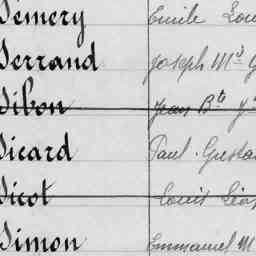 Sémery Emile Lou
Serrand Joseph M
Sibon Jean Bte
Sicard Paul Gusta
Sicot Louis Léo
Simon Emmanuel M